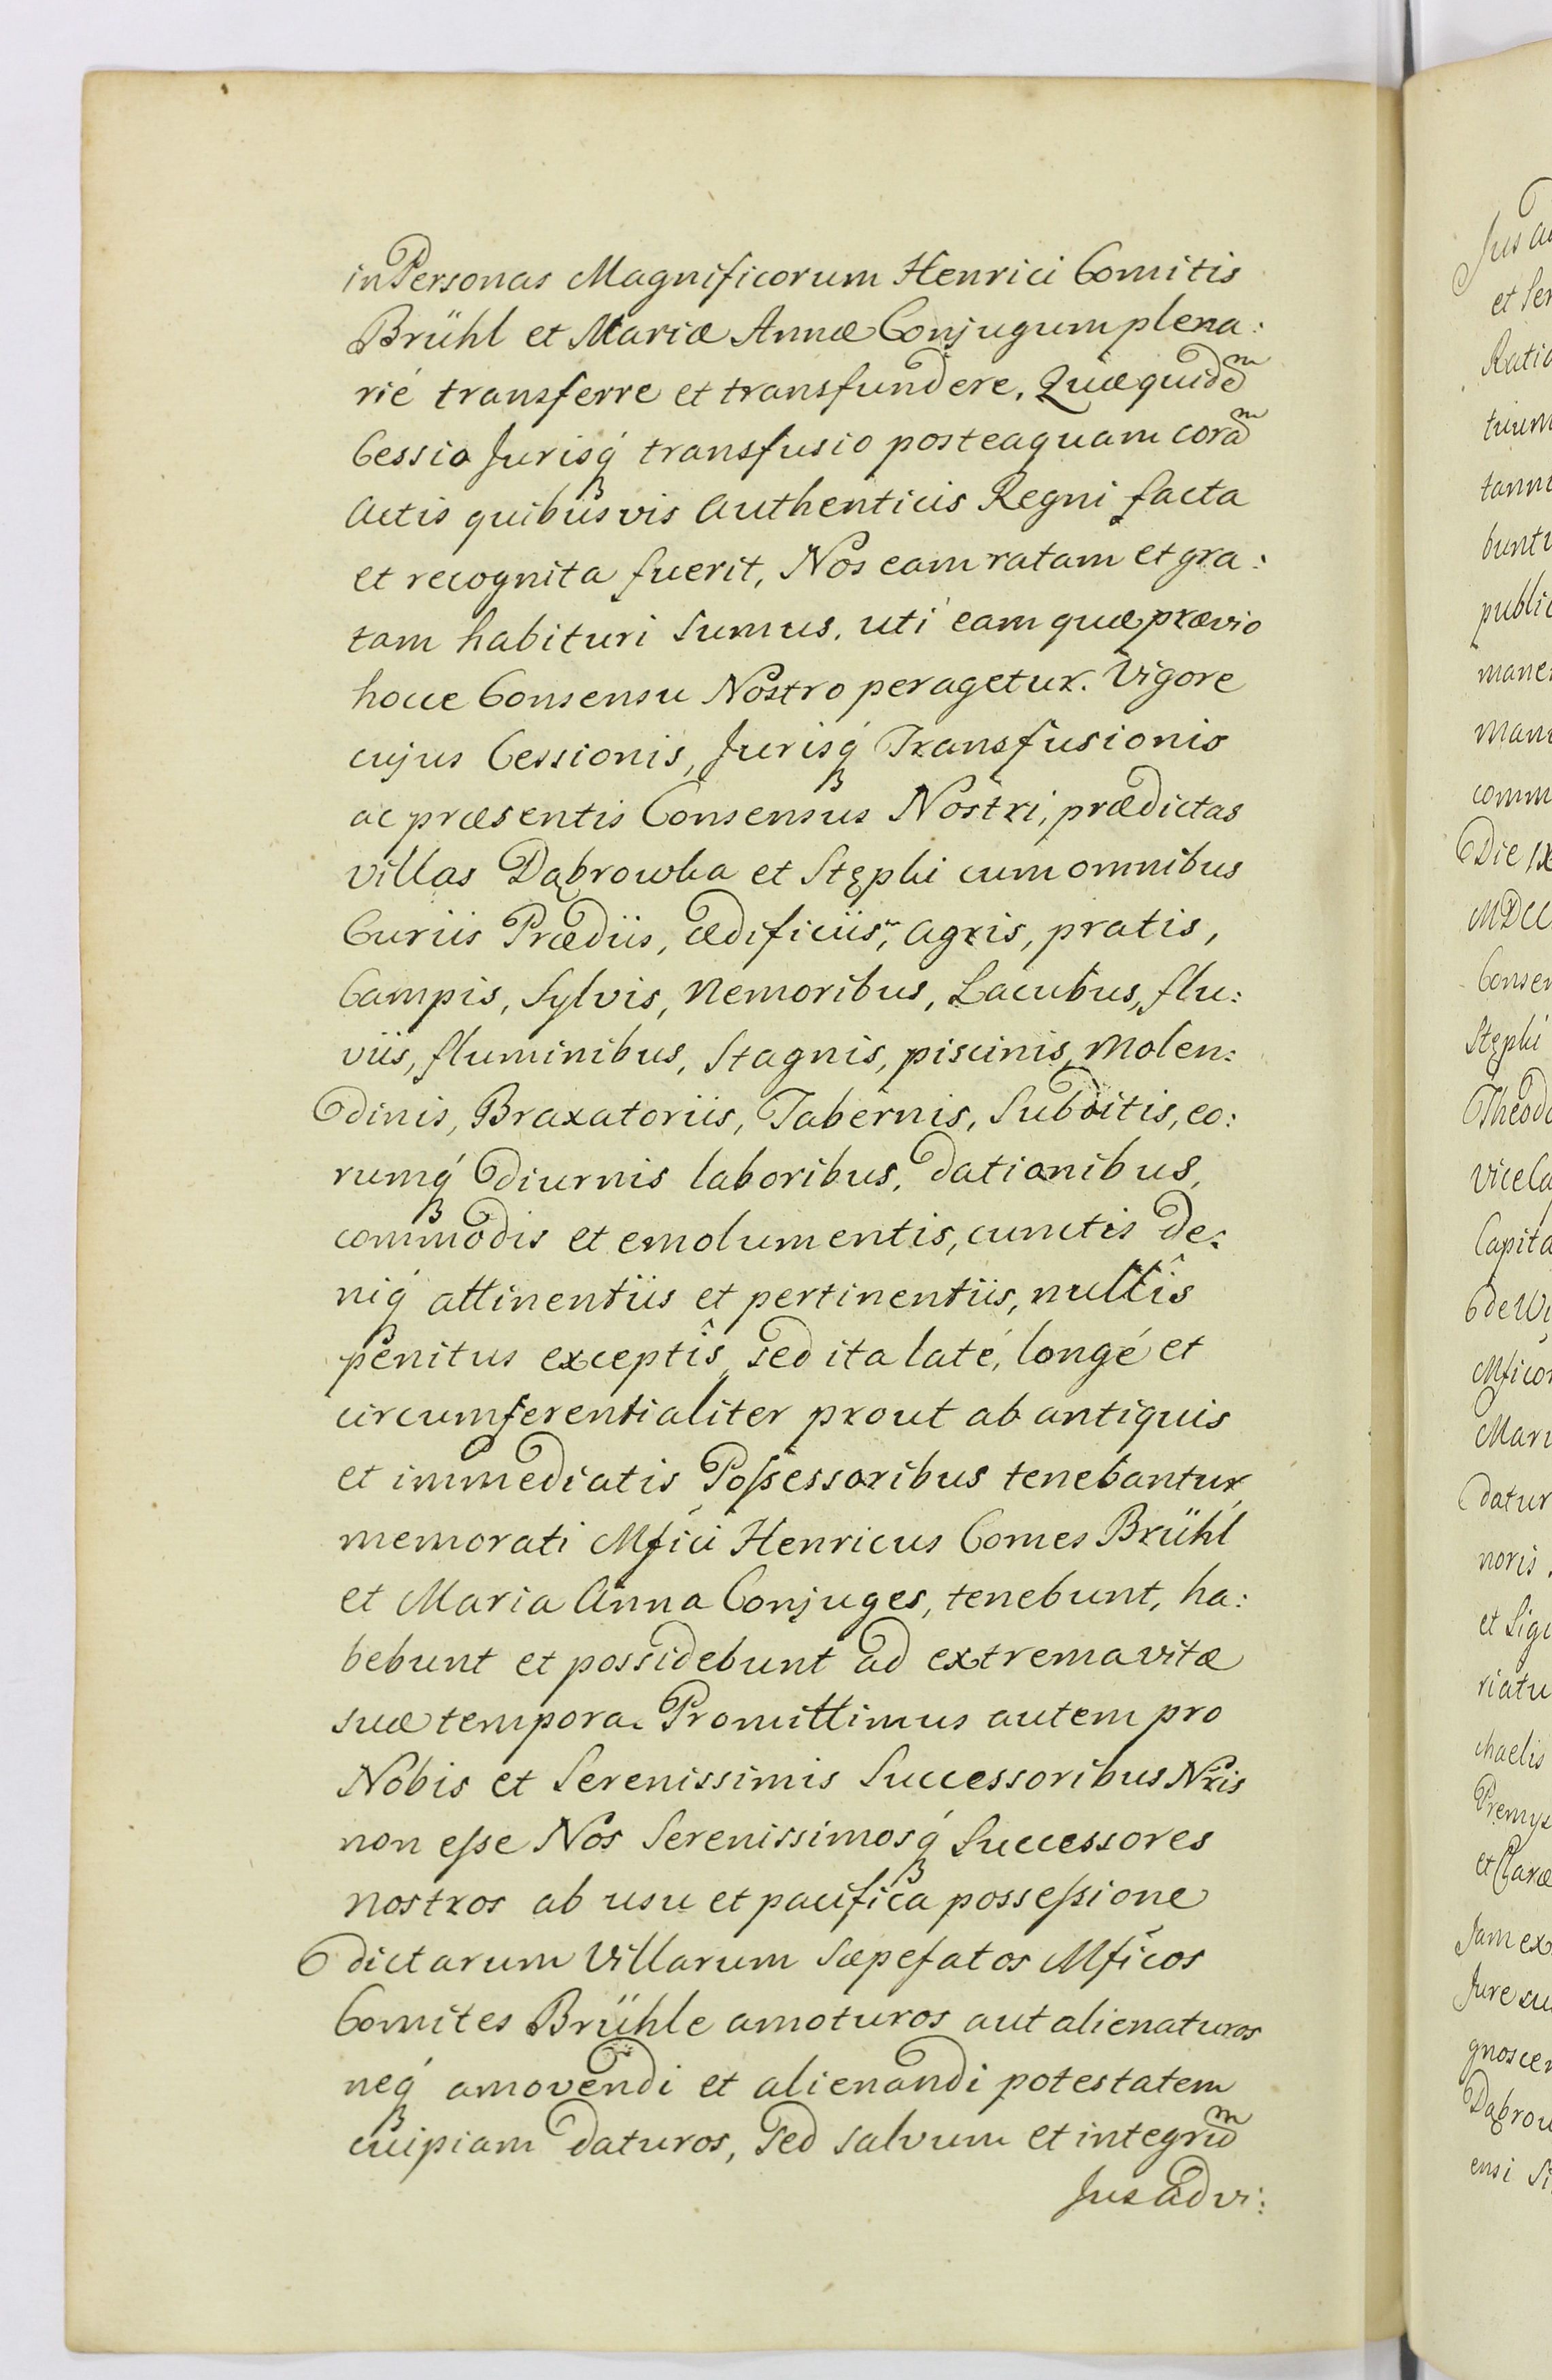 in Personas Magnificorum Henrici Comitis
Brühl et Mariæ Annæ Conjugum plena:
rié transferre et transfundere. Quæ quidem
Cessio Jurisq́ transfusio posteaquam coram
Actis quibusvis Authenticis Regni facta
et recognita fuerit, Nos eam ratam et gra:
tam habituri sumus, uti eam quæ prævio
hocce Consensu Nostro peragetur. Vigore
cujus Cessionis, Jurisq́ Transfusionis
ac præsentis Consensus Nostri, prædictas
villas Dąbrowka et Stępki cum omnibus
Curiis Prædiis, ædificiis, agris, pratis,
Campis, Sylvis, Nemoribus, Lacubus, flu:
viis, fluminibus, Stagnis, piscinis, Molen:
dinis, Braxatoriis, Tabernis, Subditis, eo:
rumq́ diurnis laboribus, dationibus,
commodis et emolumentis, cunctis de:
niq́ attinentiis et pertinentiis, nullîs
penitus exceptîs, sed ita laté, longé et
circumferentialiter prout ab antiquis
et immediatis Poſsessoribus tenebantur,
memorati Mfici Henricus Comes Brühl
et Maria Anna Conjuges, tenebunt, ha:
bebunt et possidebunt ad extrema vitæ
suæ tempora. Promittimus autem pro
Nobis et Serenissimis Successoribus Nris
non eſse Nos Serenissimosq́ Successores
nostros ab usu et pacifica posseſsione
dictarum Villarum Sæpefatos Mficos
Comites Brühle amoturos aut alienaturos
neq́ amovendi et alienandi potestatem
cuipiam daturos, sed salvum et integrum
Jus ad vi: